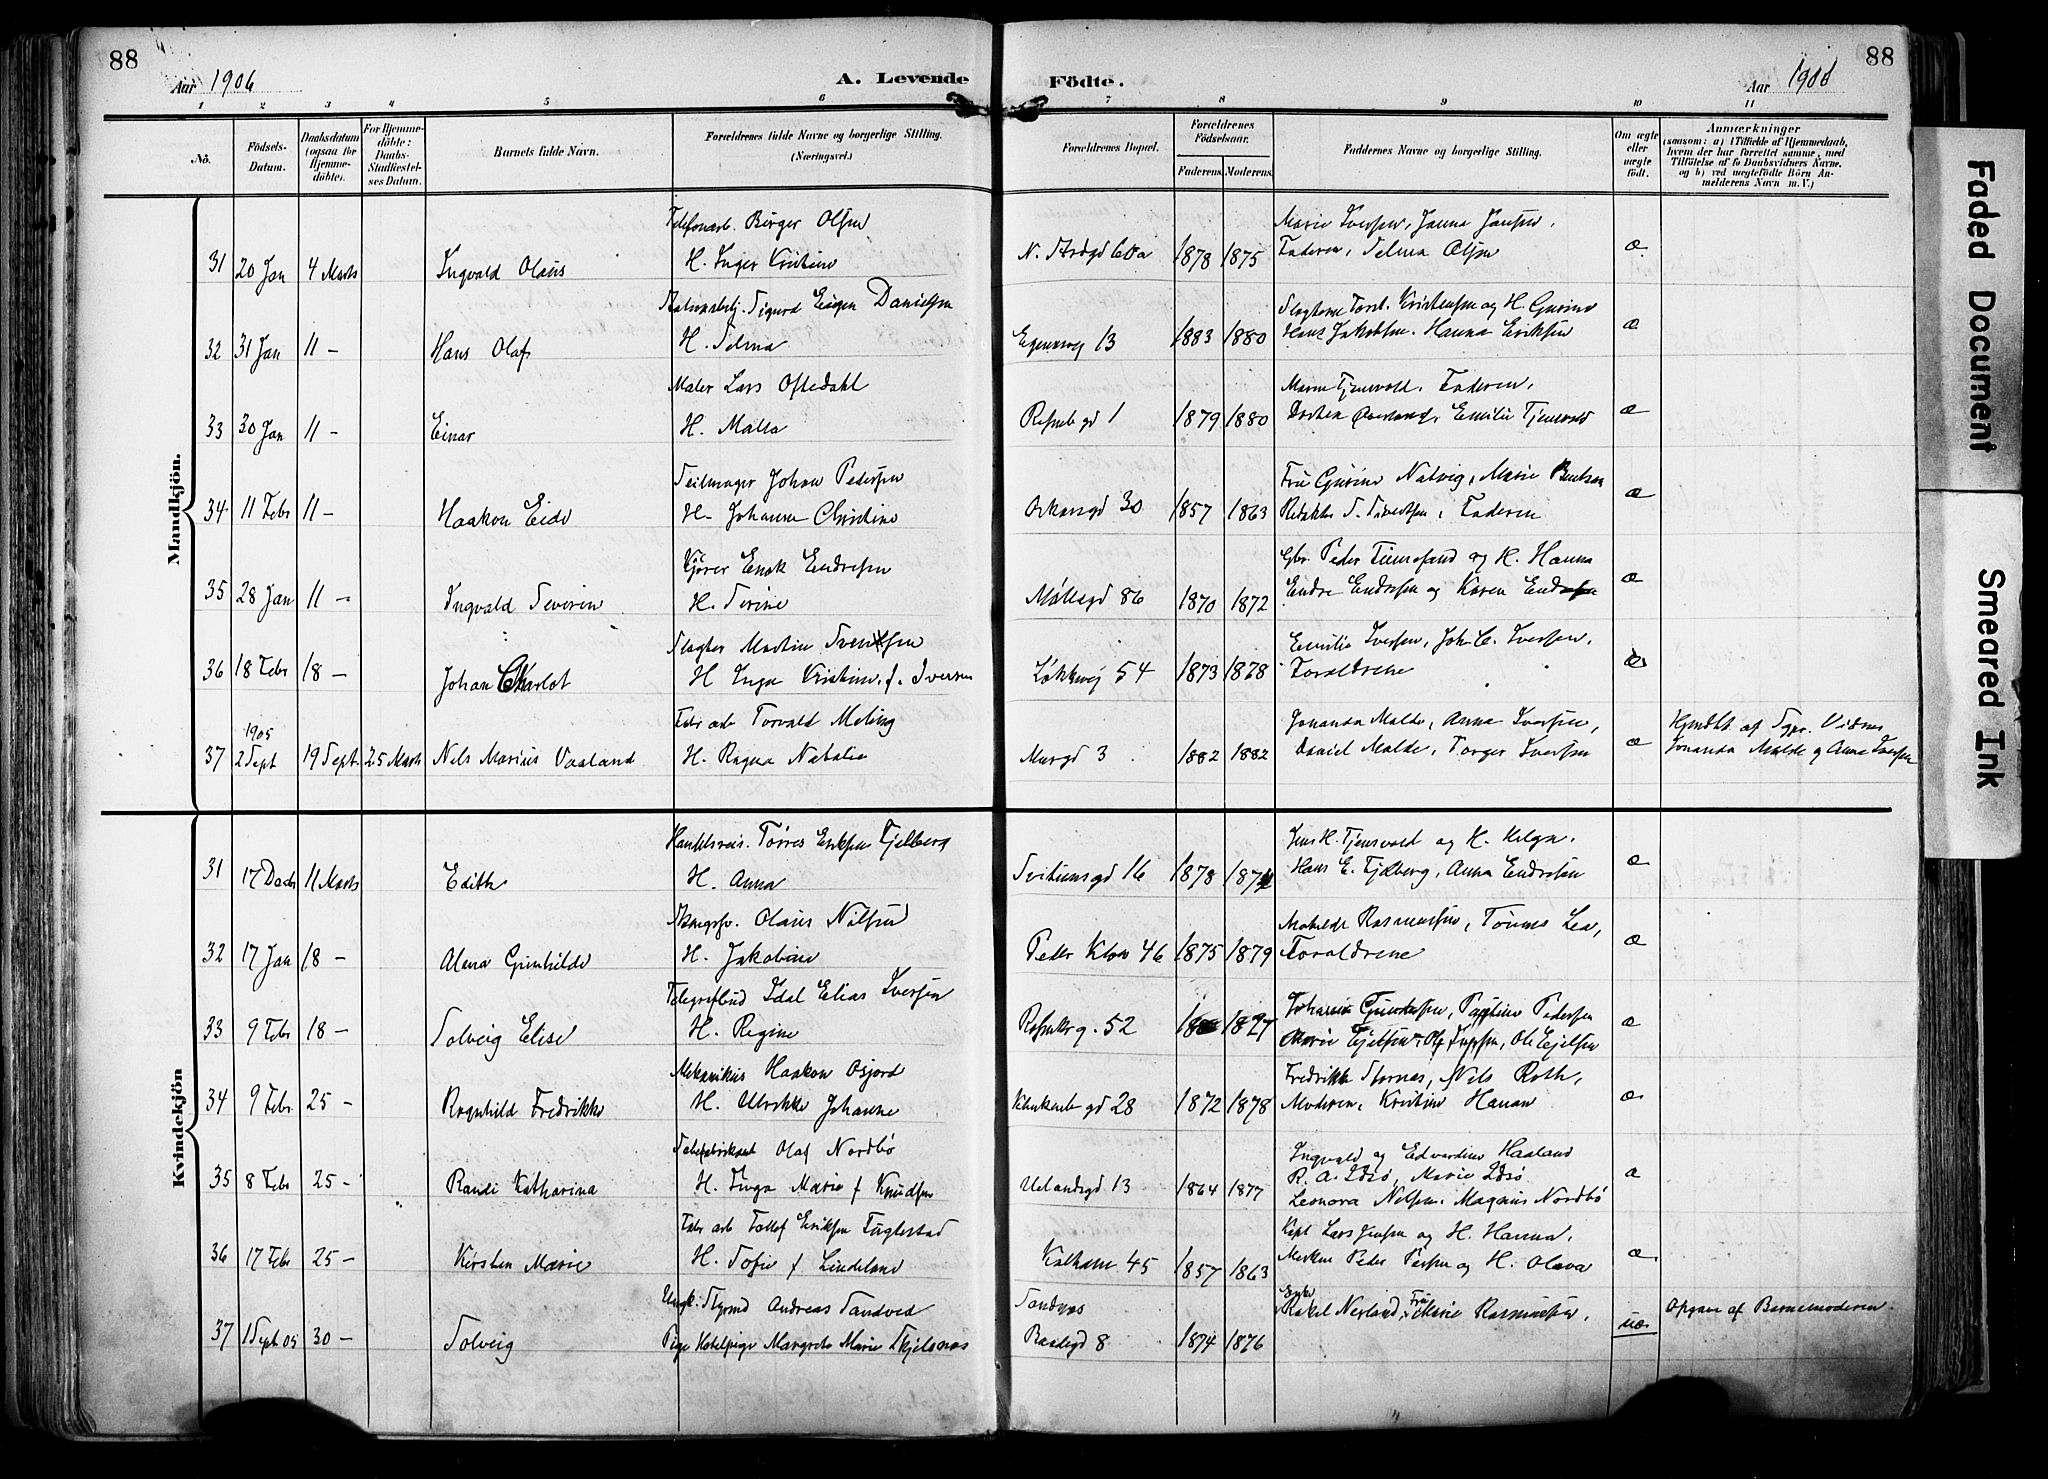 88
Aar 1906
A. Levende
Födte.
Aar 1906
88
1 2 3 4 5 6 7 8 9 10 11
Nö.
Födsels-Datum.
Daabsdatum (ogsaa for Hjemmedöbte).
For Hjemmedöbte: Daabs-Stadfæstelses Datum.
Barnets fulde Navn.
Forældrenes fulde Navne og borgerlige Stilling. (Næringsvei.)
Forældrenes Bopæl.
Forældrenes Födselsaar.
Faderens. Moderens.
Faddernes Navne og borgerlige Stilling.
Om ægte eller uægte födt.
Anmærkninger
(saasom: a) i Tilfælde af Hjemmedaab, hvem der har forrettet samme, med Tilföielse af to Daabsvidners Navne, og b) ved uægtefödte Börn Anmelderens Navn m. V.)
Mandkjön.
Telefonarb. Birger Olsen
Marie Iversen, Janna Jansen,
31 20 Jan 4 Marts Ingvald Olaus H. Inger Kristine 1878 1875 Faderen, Selma Olsen æ
Sigurd Eugen Danielsen
Kristensen og H. Gurine
32 31 Jan 11 - Hans Olaf H. Selma 13 1883 1880 Hans Jakobsen. Hanna Eriksen æ
Maler Lars Oftedahl
Tjensvold, Faderen,
33 30 Jan 11 - Einar H. Malla gd 1 1879 1880 Emilie Tjensvold æ
Seilmager Johan Pedersen
Fru Gurine Natvig, Marie Bentsen
34 11 Febr 11 - Haakon Eide H. Johanne Christine 30 1857 1863 Redaktør S. Sivertsen, Faderen æ
Kjører Enok Endresen
Peder Timesfand og H. Hanna
35 28 Jan 11 - Ingvald Severin H. Serine Møllegd 86 1870 1872 Endre Endresen og Karen Endresen æ
Slagter Martin Svendsen
Emilie Iversen, Joh. C. Iversen,
36 18 Febr 18 - Johan Charlot H Inga Kristine f. Iversen Løkkevej 54 1873 1878 Forældrene æ
Fabr arb Torvald Meling
Jonanda Malde, Anna Iversen,
Hjmdbt af Vidner
1905
37 2 Sept 19 Sept 25 Marts Nils Marius Vaaland H. Ragna Natalia Murgd 3 1882 1882 Daniel Malde, Torger Iversen æ Jonanda Malde og Anna Iversen
Kvindekjön
Handelsreis. Tørres Eriksen Fjelberg
Jens H. Tjensvold og H. Helga,
31 17 Decbr 11 Marts Edith H. Anna Svithunsgd 16 1878 Hans E. Fjelberg, Anna Endresen æ
Olaus Nilsen
Mathilde Rasmussen, Tønnes Lea,
32 17 Jan 18 - Alma Gunhilde H. Jakobine Peder Klow 46 1875 1879 Forældrene æ
Telegrafbud Idal Elias Iversen
Pedersen
33 9 Febr 18 - Solveig Elise H. Regine 52 Marie Ole Ejelsen æ
Mekanikus Haakon Osjord
Fredrikke Stornæs, Nils Roth,
34 9 Febr. 25 - Ragnhild Fredrikke H. Ulrikke Johanne gd 28 1872 1878 Moderen, Kristine Hanan æ
Olaf Nordbø
Ingvald og Edvardine Haaland
R. A. Idsø, Marie Idsø
35 8 Febr 25 - Randi Katharina H. Inga Marie f Knudsen Uelandsgd 13 1864 1877 Leonora Nilsen, Magnus Nordbø æ
Fabr arb Tollef Eriksen Fuglestad
Kapt Lars Jensen og H. Hanna,
36 17 Febr 25 - Kirsten Marie H. Sofie f Lindeland Kalham 45 1857 1863 Peder og H. Olava æ
Ungk. Styrmd Andreas Sandved
Sandnes
Enke Rakel Nerland, Fru Marie Rasmussen,
Opgave af Barnemoderen.
37 1 Sept 05 30 - Solveig Pige Hotelpige Margrete Marie Skjelsnæs 8 1874 1876 uæ
Faded Document
Smeared Ink